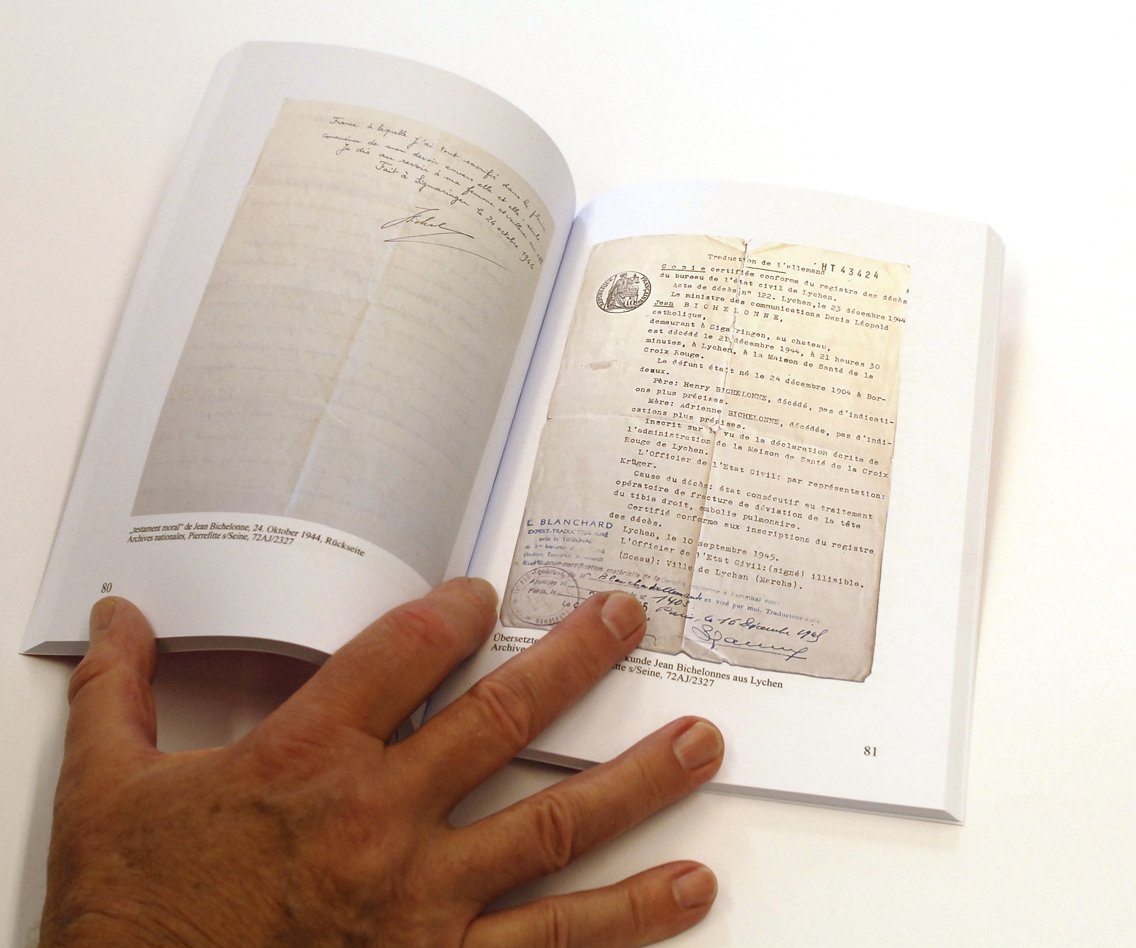 France à laquelle j'ai tout sacrifié dans la pleine
conscience de mon devoir envers elle et elle seule.
Je dis au revoir à ma femme et
Fait à Sigmaringen le 24 octobre 1944
„testament moral“ de Jean Bichelonne, 24. Oktober 1944, Rückseite
Archives nationales, Pierrefitte s/Seine, 72AJ/2327
80
Traduction de l'allemand HT 43424
Copie certifiée conforme du registre des décès
du bureau de l'état civil de Lychen.
Acte de décès n° 122. Lychen, le 23 décembre 1944
Le ministre des communications Denis Léopold
Jean BICHELONNE,
catholique,
demeurant à Sigmaringen, au chateau,
est décédé le 21 décembre 1944, à 21 heures 30
minutes, à Lychen, à la Maison de Santé de la
Croix Rouge.
Le défunt était né le 24 décembre 1904 à Bor-
deaux.
Père: Henry BICHELONNE, décédé, pas d'indicati-
ons plus précises.
Mère: Adrienne BICHELONNE, décédée, pas d'indi-
cations plus précises.
Inscrit sur le vu de la déclaration écrite de
l'administration de la Maison de Santé de la Croix
Rouge de Lychen.
L'Officier de l'Etat Civil: par représentation:
Krüger.
Cause du décès: état consécutif au traitement
opératoire de fracture de déviation de la tête
du tibia droit, embolie pulmonaire.
Certifié conforme aux inscriptions du registre
des décès.
Lychen, le 10 septembre 1945.
L'Officier de l'Etat Civil:(signé) illisible.
(Sceau): Ville de Lychen (Marche).
E. BLANCHARD
EXPERT-TRADUCTEUR-JURÉ
1403
Paris, le 16 Décembre
Übersetzte
kunde Jean Bichelonnes aus Lychen
Archiv
tte s/Seine, 72AJ/2327
81